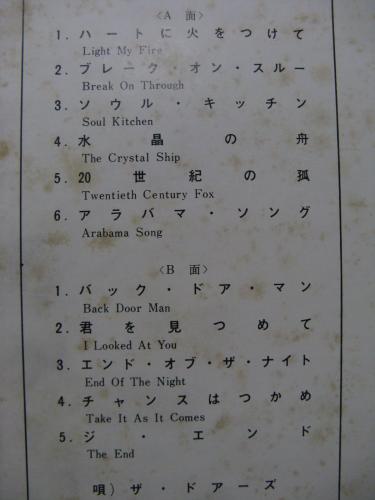 〈A 面〉
1. ハートに火をつけて
Light My Fire
2. ブレーク・オン・スルー
Break On Through
3. ソウル・キッチン
Soul Kitchen
4. 水晶の舟
The Crystal Ship
5. 20世紀の狐
Twentieth Century Fox
6. アラバマ・ソング
Arabama Song
〈B 面〉
1. バック・ドア・マン
Back Door Man
2. 君を見つめて
I Looked At You
3. エンド・オブ・ザ・ナイト
End Of The Night
4. チャンスはつかめ
Take It As It Comes
5. ジ・エンド
The End
唄) ザ・ドアーズ